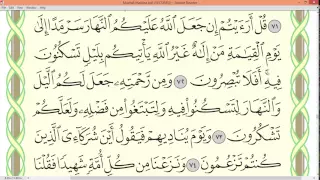 ٧١ قُلْ أَرَءَيْتُمْ إِن جَعَلَ ٱللَّهُ عَلَيْكُمُ ٱلنَّهَارَ سَرْمَدًا إِلَىٰ
يَوْمِ ٱلْقِيَٰمَةِ مَنْ إِلَٰهٌ غَيْرُ ٱللَّهِ يَأْتِيكُم بِلَيْلٍ تَسْكُنُونَ
فِيهِ أَفَلَا تُبْصِرُونَ ٧٢ وَمِن رَّحْمَتِهِۦ جَعَلَ لَكُمُ ٱلَّيْلَ
وَٱلنَّهَارَ لِتَسْكُنُوا۟ فِيهِ وَلِتَبْتَغُوا۟ مِن فَضْلِهِۦ وَلَعَلَّكُمْ
تَشْكُرُونَ ٧٣ وَيَوْمَ يُنَادِيهِمْ فَيَقُولُ أَيْنَ شُرَكَآءِىَ ٱلَّذِينَ
كُنتُمْ تَزْعُمُونَ ٧٤ وَنَزَعْنَا مِن كُلِّ أُمَّةٍ شَهِيدًا فَقُلْنَا